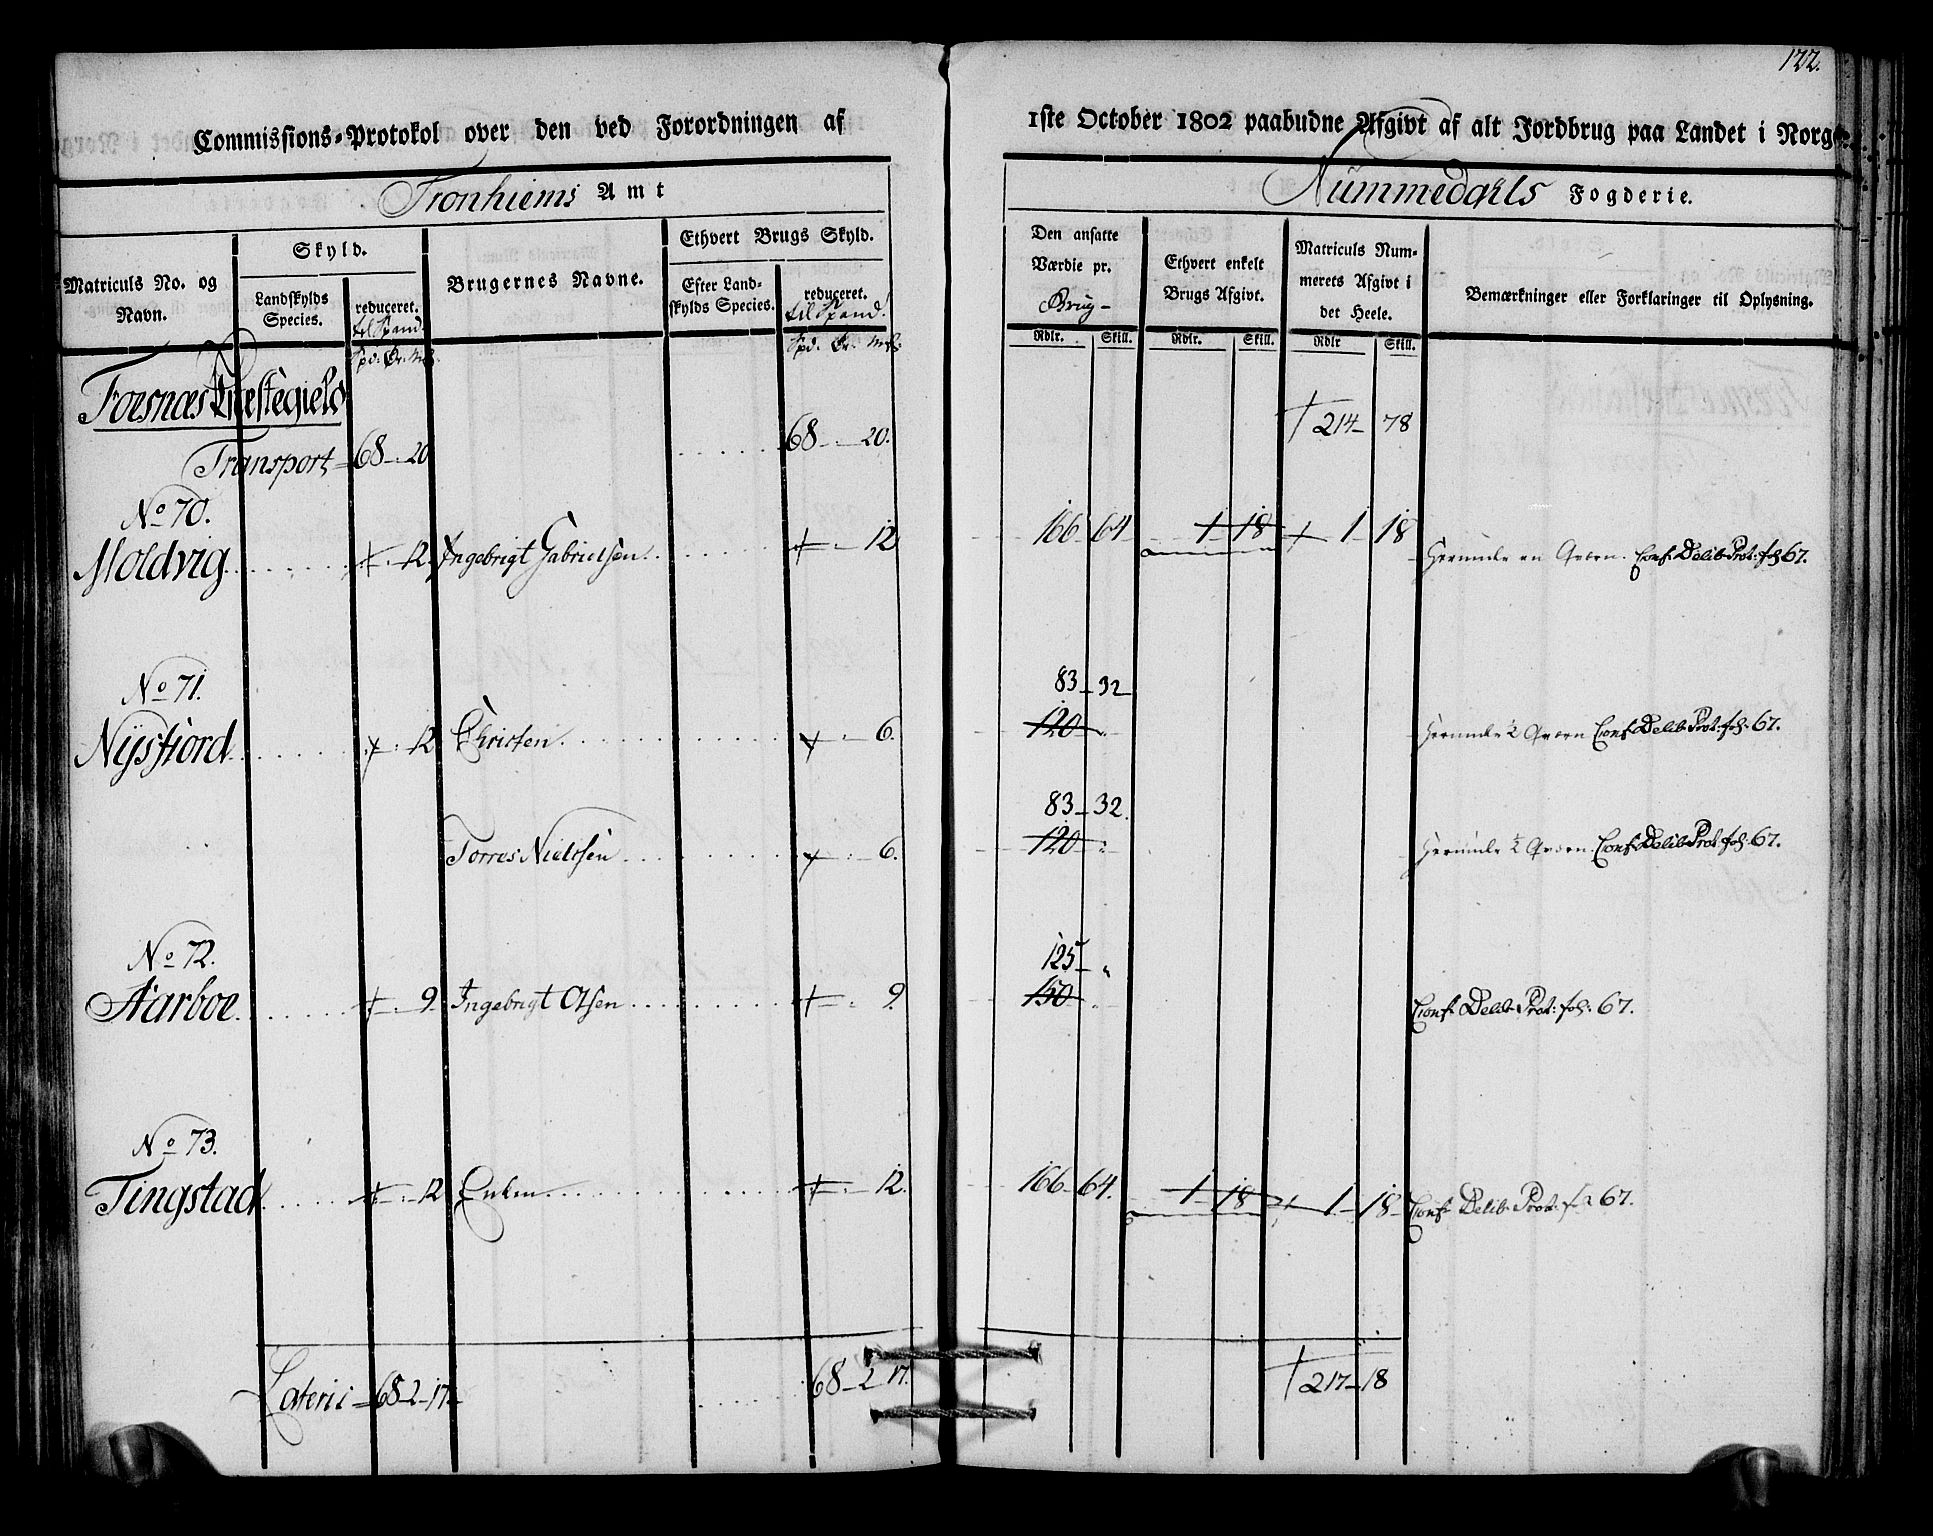 122.
Commissions-Protokol over den ved Forordningen af 1ste October 1802 paabudne Afgivt af alt Jordbrug paa Landet i Norge.
Tronhiems Amt
Nummedahls Fogderie.
Matriculs No. og Navn.
Skyld.
Landskylds Species.
reduceret. til Spand.
Spd. Ør. Mrk.
Brugernes Navne.
Ethvert Brugs Skyld.
Efter Landskylds Species.
reduceret. til Spand.
Spd. Ør. Mrk.
Den ansatte Værdie pr. Brug
Rdlr. Skill.
Ethvert enkelt Brugs Afgivt.
Rdlr. Skill.
Matriculs Nummerets Afgivt i det Heele.
Rdlr Skill.
Bemærkninger eller Forklaringer til Oplysning.
Foesnæs Præstegield
Transport 68 - 20 68 - 20. 214 78
No 70.
Moldvig 12. Ingebrigt Gabrielsen 12 166 64 1 18 1 18 herunder en Qværn. Conf. Delib. Prot: fol 67.
No 71.
83 32
Nysfiord 12 Christen 6. 120 herunder ½ Qværn Conf. Delib. Prot: fol. 67.
83 32.
Torres Nielssen 6. 120 herunder ½ Qværn. Conf. Delib. Prot: fol. 67.
No 72.
125
Aarboe 9. Ingebrigt Olsen 9. 150 Conf. Delib. Prot: fol: 67.
No 73.
Tingstad 12 Enken 12. 166 64. 1 18 1 18 Conf. Delib. Prot: 67.
Lateris 68 - 2 - 17 68 - 2 17. 217 - 18